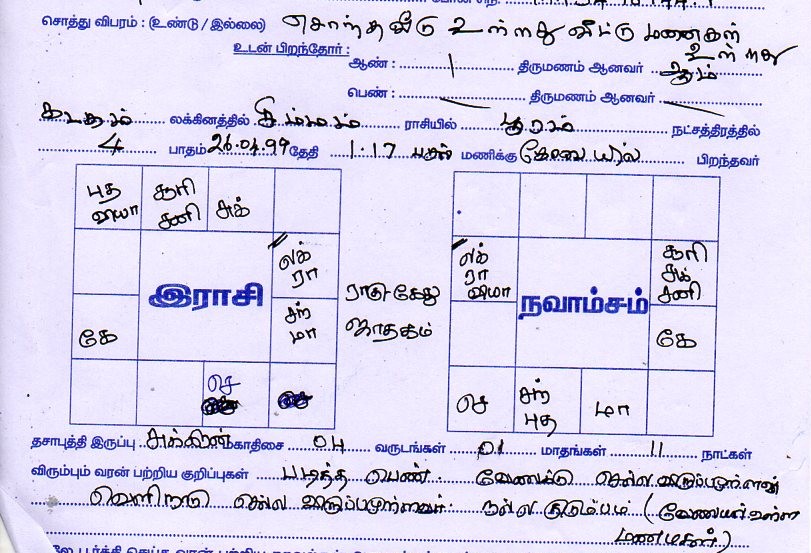 சொத்து விபரம் : (உண்டு/இல்லை) சொந்த வீடு உள்ளது வீட்டு மனைகள் உள்ளது
உடன் பிறந்தோர் :
ஆண் : 1 திருமணம் ஆனவர் ஆம்
பெண் : — திருமணம் ஆனவர் —
கடகம் லக்கினத்தில் சிம்மம் ராசியில் பூரம் நட்சத்திரத்தில்
4 பாதம் 26.04.99 தேதி 1.17 பகல் மணிக்கு கோவையில் பிறந்தவர்
புத வியா
சூரி சனி
சுக்
லக் ரா
சந் மா
செ
கே
இராசி
ராகு-கேது
ஜாதகம்
லக் ரா வியா
சூரி சுக் சனி
கே
மா
சந் புத
செ
நவாம்சம்
தசாபுத்தி இருப்பு சுக்கிரன் மகாதிசை 04 வருடங்கள் 01 மாதங்கள் 11 நாட்கள்
விரும்பும் வரன் பற்றிய குறிப்புகள் படித்த பெண். வேலைக்கு செல்ல விருப்பமுள்ளவள்
வெளிநாடு செல்ல விருப்பமுள்ளவள். நல்ல குடும்பம் (வேலையில் உள்ள
மணமகள்)